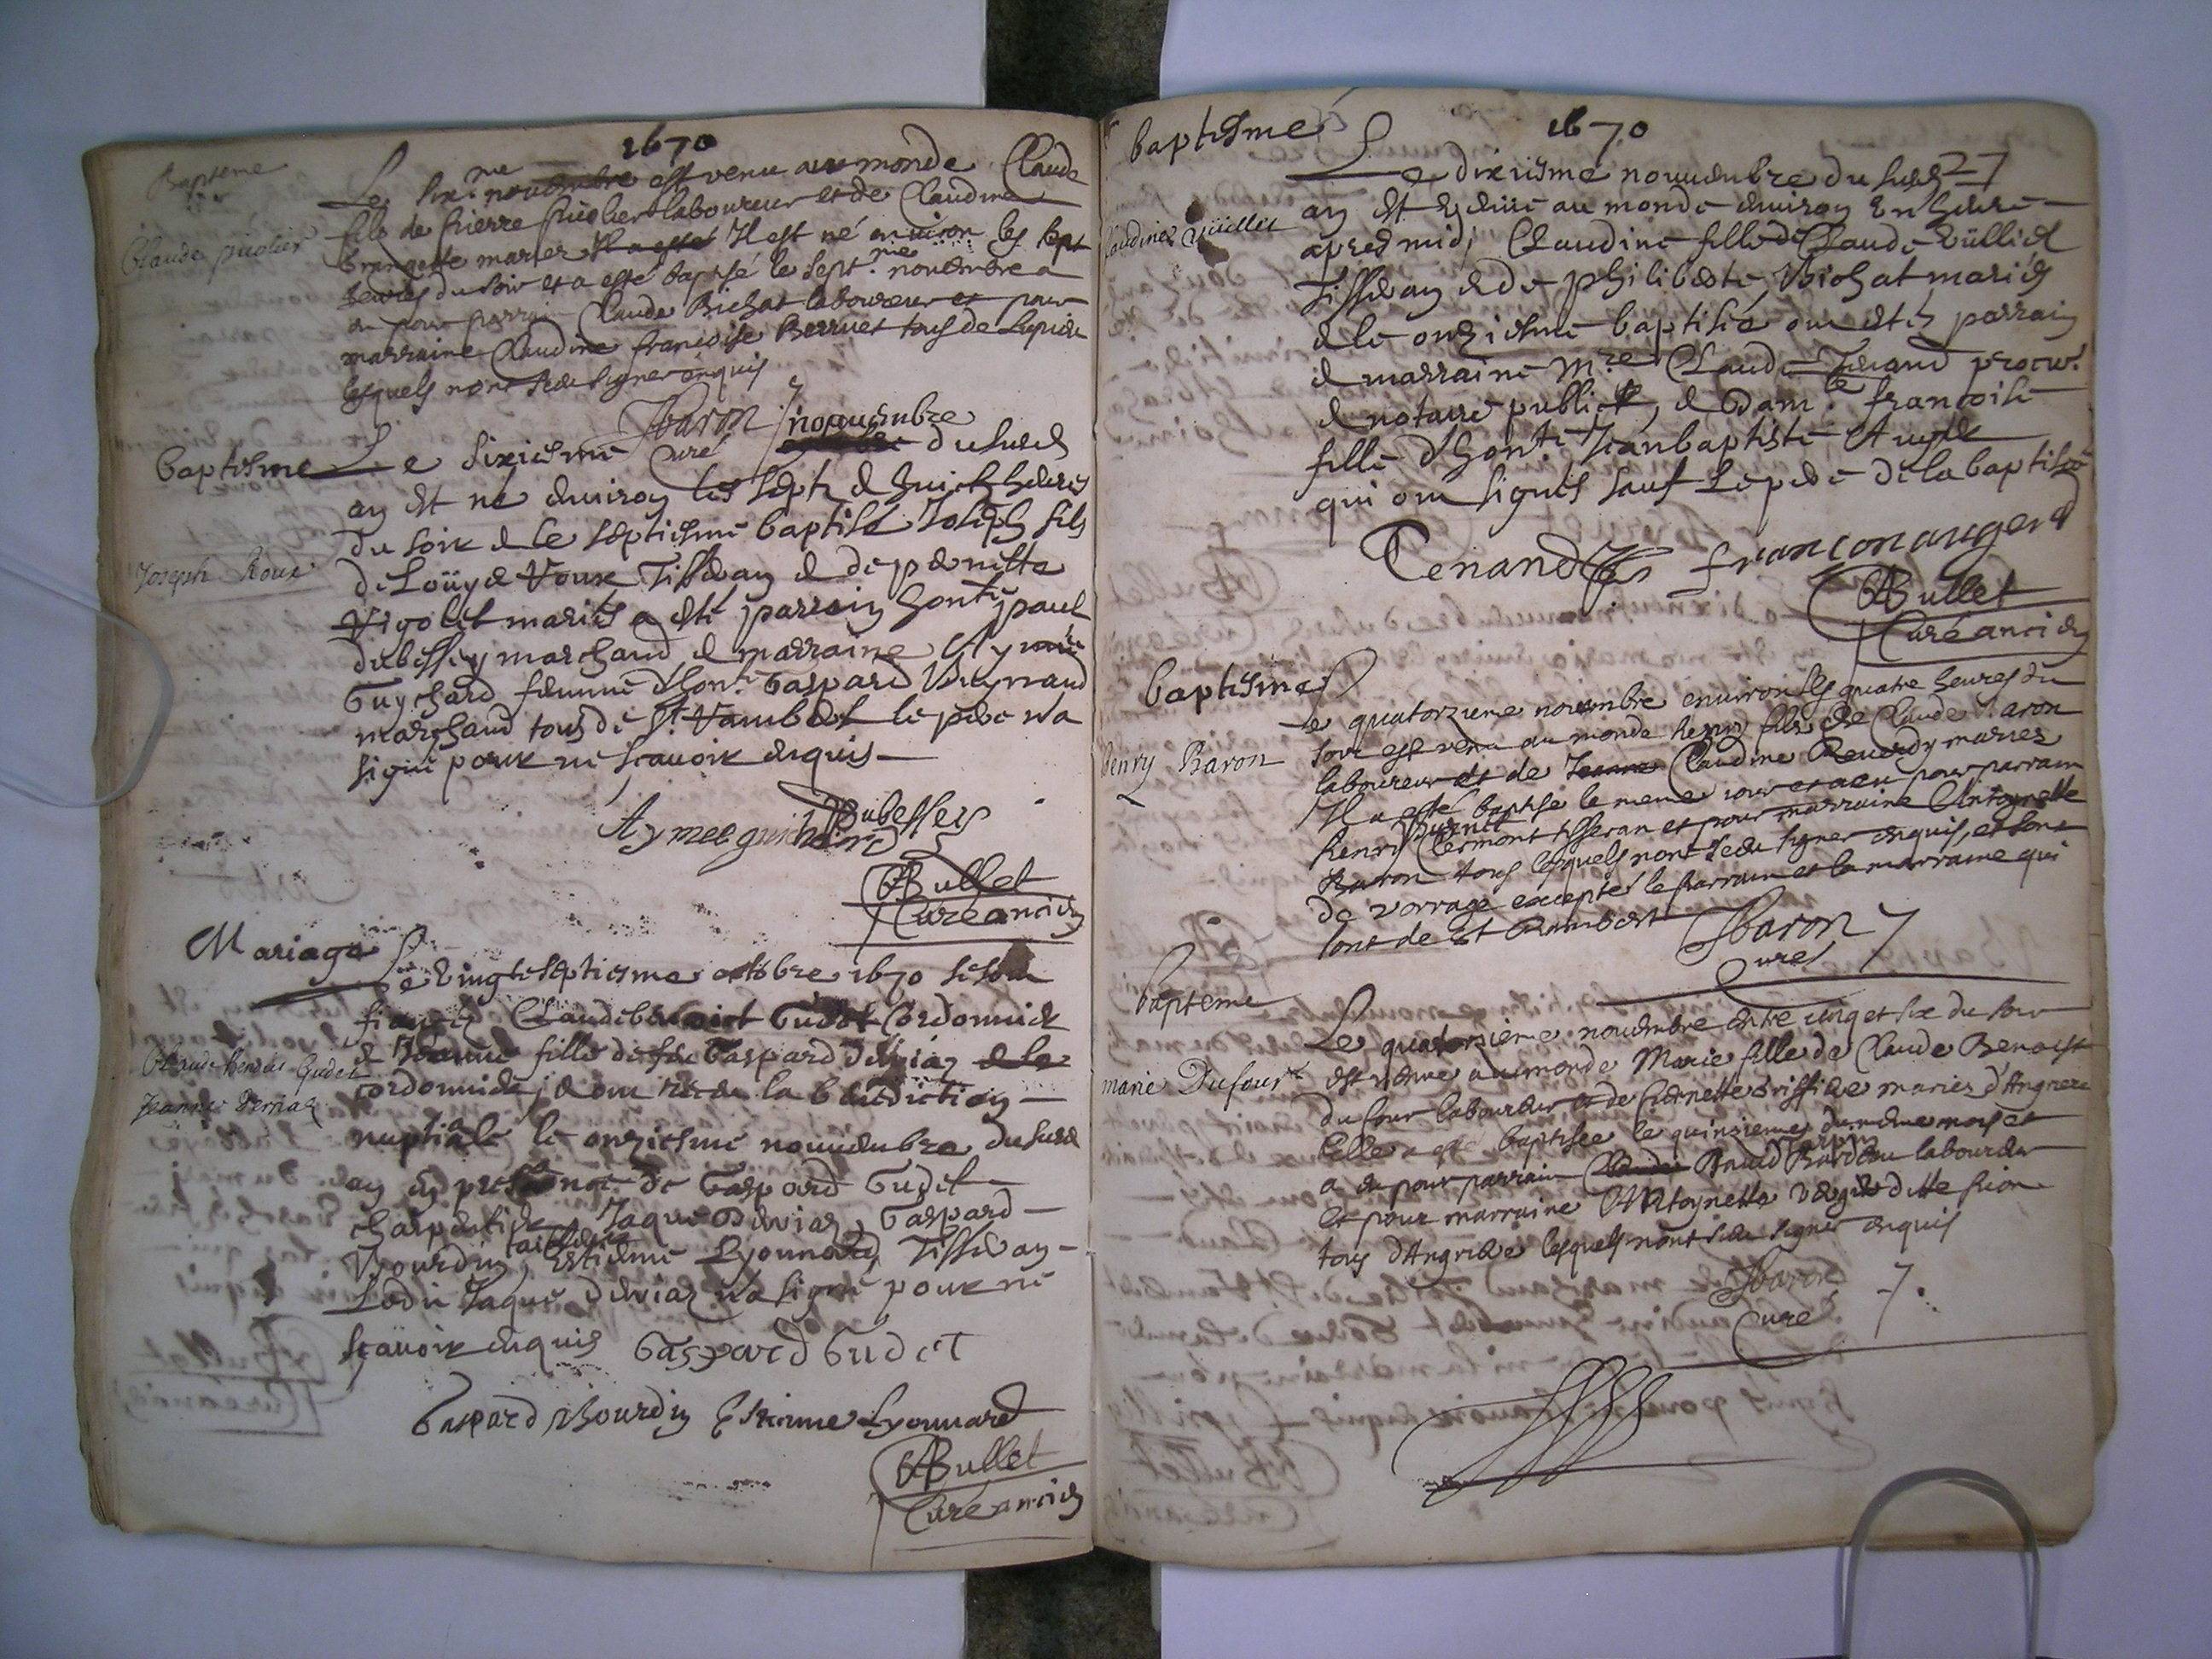 1670
Bapteme
Le six.me novembre est venu au monde Claude
fils de pierre laboureur et de Claudine
mariez Il a esté Il est né environ les sept
heures du soir et a esté baptisé le sept.me novembre a
eu pour parrain Claude Bichat laboureur et pour
marraine Claudine françoise tous de
lesquels nont sceu signer enquis
Baron
Curé
novembre
baptesme Le sixiesme du susd
an est né environ les sept et huict heures
du soir et le septiesme baptisé Joseph fils
Joseph Roux
de Louys Roux Tisseran et de pernette
Vigolet mariés a esté parrain hont paul
dubessey marchand et marraine Aymée
Guychard femme d'hon. Gaspard Reynaud
marchand tous de St Rambert le pere n'a
signé pour ne scavoir enquis
Dubessey
Aymee guichard
Bullet
Curé ancien
Mariage
Le vingt septiesme octobre 1670 se sont
fiancés Claude benoist Gudet Cordonnier
Claude benoist Gudet
et Jeanne fille de feu Gaspard Derviaz
Jeanne Derviaz
cordonnier, et ont receu la benediction
nuptiale le onziesme novembre du susd
an en presence de Gaspard Gudet
charpentier Jaque Derviaz, Gaspard
Bourdin, Estienne Lyonnard Tisseran
Ledit Jaque derviaz n'a signé pour ne
scavoir enquis Gaspard Gudet
Gaspard Bourdin Estienne Lyonnard
Bullet
Curé ancien
1670
baptesme
Le dixiesme novembre du susd
an est venue au monde environ un heure
Claudine
apres midi, Claudine fille de Claude
Tisseran et de philiberte Bichat mariés
et le onziesme baptisée ont estés parrain
et marraine M.re Claude Tenand procur.
et notaire public, et Dam.lle françoise
fille d'hon. Jean baptiste
qui ont signés sauf le pere de la baptisée
Tenand
Bullet
Curé ancien
baptesme
Le quatorzieme novembre environ les quatre heures du
soir est venu au monde henry fils de Claude Baron
henry Baron
laboureur et de Jeanne Claudine mariez
Il a esté baptisé le meme iour et a eu pour parrain
henry Clermont tisseran et pour marraine Antoynette
Baron tous lesquels nont sceu signer enquis, et sont
de vorrage exceptés le parrain et la marraine qui
sont de St Rambert
Baron
Curé
bapteme
Le quatorsieme novembre entre cinq et six du soir
est venue au monde Marie fille de Claude Benoist
marie Dufour
dufour laboureur et de mariez
Elle a esté baptisée le quinsieme du meme mois et
a eu pour parrain laboureur
et pour marraine Antoynette
tous lesquels nont sceu signer enquis
Baron
Curé